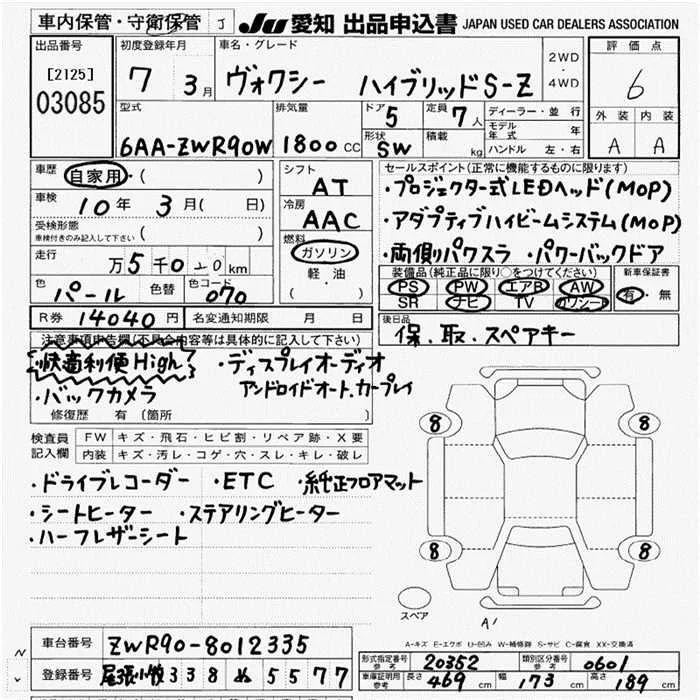 車内保管・守衛保管 J
JU 愛知 出品申込書 JAPAN USED CAR DEALERS ASSOCIATION
出品番号
[2125]
03085
初度登録年月
7 3月
車名・グレード
ヴォクシー ハイブリッドS-Z
2WD
・
4WD
評価点
6
外装 内装
A A
型式
6AA-ZWR90W
排気量
1800 CC
ドア
5
定員
7人
形状
SW
積載
kg
ディーラー・並行
モデル年式 年
ハンドル 左・右
車歴
自家用・( )
車検
10年 3月( 日)
受検形態
車検付きのみ記入して下さい ( )
走行
万5千020km
色
パール
色替
色コード
070
R券 14040円
名変通知期限 月 日
シフト
AT
冷房
AAC
燃料
ガソリン
軽・油
( )
セールスポイント(正常に機能するものに限ります)
・プロジェクター式LEDヘッド(MOP)
・アダプティブハイビームシステム(MOP)
・両側パワスラ ・パワーバックドア
装備品(純正品に限り○をつけてください)
PS PW エアB AW
SR ナビ TV カワシート
新車保証書
有・無
後日品
保.取.スペアキー
注意事項申告欄(不具合内容等は具体的に記入して下さい)
快適利便High ・ディスプレイオーディオ
アンドロイドオート.カープレイ
・バックカメラ
修復歴 有 (箇所
検査員記入欄
FW キズ・飛石・ヒビ割・リペア跡・X要
内装 キズ・汚レ・コゲ・穴・スレ・キレ・破レ
・ドライブレコーダー ・ETC ・純正フロアマット
・シートヒーター ・ステアリングヒーター
・ハーフレザーシート
8 8
8 8
スペア
A'
A-キズ E-エクボ U-凹み W-補修跡 S-サビ C-腐食 XX-交換済
車台番号 ZWR90-8012335
登録番号 尾張小牧 338 め 5577
形式指定番号 参考 20352
類別区分番号 参考 0601
車庫証明用 参考 長さ 469cm 幅 173cm 高さ 189cm